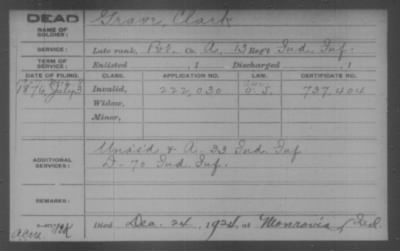 DEAD
NAME OF SOLDIER: Grave, Clark
SERVICE: Late rank, Pvt. Co. A, 13 Reg't Ind. Inf.
TERM OF SERVICE: Enlisted , 1 Discharged , 1
DATE OF FILING. CLASS. APPLICATION NO. LAW. CERTIFICATE NO.
1876, July 3 Invalid, 222,030 G. L. 737,404
Widow,
Minor,
ADDITIONAL SERVICES: Unas'd & A. 33 Ind Inf
D- 70 Ind. Inf.
REMARKS:
Died Dec. 24, 1924, at Monrovia, Ind.